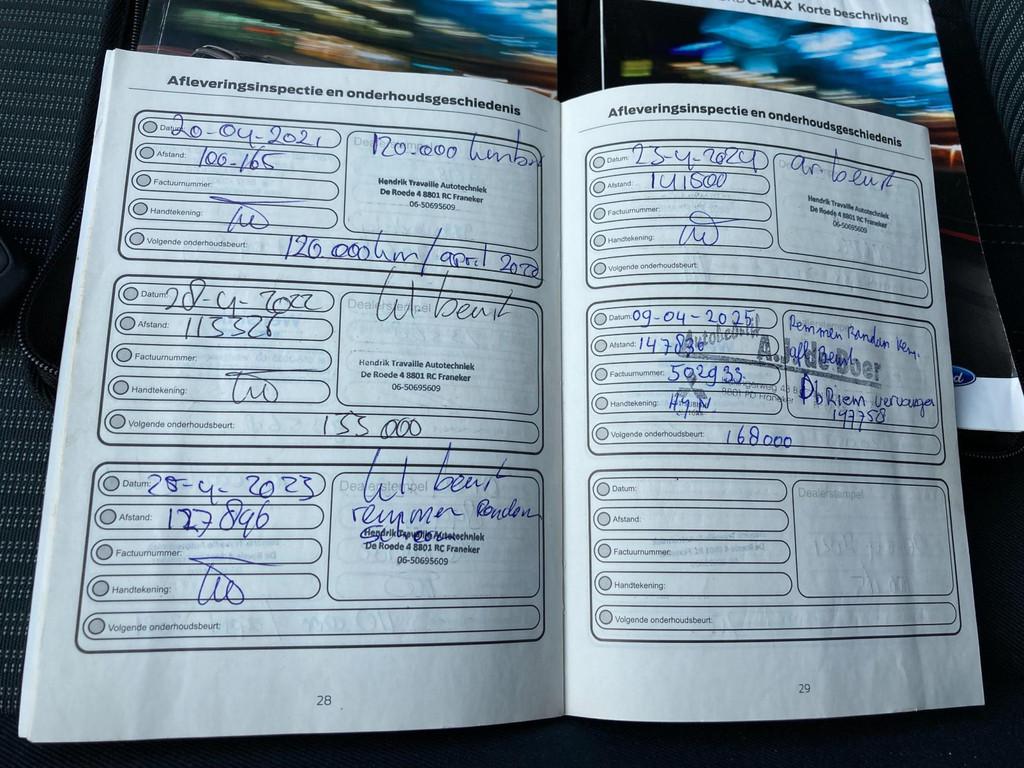 C-MAX Korte beschrijving
Afleveringsinspectie en onderhoudsgeschiedenis
Datum: 20-04-2021
Afstand: 106-165
Factuurnummer:
Handtekening:
Volgende onderhoudsbeurt: 120.000km/april 2022
120.000
Hendrik Travaille Autotechniek
De Roede 4 8801 RC Franeker
06-50695609
Datum: 28-4-2022
Afstand: 113326
Factuurnummer:
Handtekening:
Volgende onderhoudsbeurt: 135000
Dealerstempel
beurt
Hendrik Travaille Autotechniek
De Roede 4 8801 RC Franeker
06-50695609
Datum: 28-4-2023
Afstand: 127896
Factuurnummer:
Handtekening:
Volgende onderhoudsbeurt:
Dealerstempel
beurt
remmen Rondom
Hendrik Travaille Autotechniek
De Roede 4 8801 RC Franeker
06-50695609
28
Afleveringsinspectie en onderhoudsgeschiedenis
Datum: 23-4-2024
Afstand: 141600
Factuurnummer:
Handtekening:
Volgende onderhoudsbeurt:
beurt
Hendrik Travaille Autotechniek
De Roede 4 8801 RC Franeker
06-50695609
Datum: 09-04-2025
Afstand: 147836
Factuurnummer: 502933
Handtekening:
Volgende onderhoudsbeurt: 168000
Remmen Rondom
Beurt
Db Riem vervangen
147758
Autobedrijf
8801 PD Franeker
Datum:
Afstand:
Factuurnummer:
Handtekening:
Volgende onderhoudsbeurt:
Dealerstempel
29
Ford